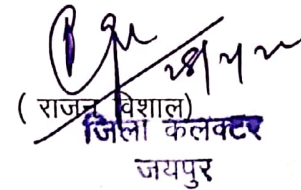 ( राजन विशाल)
जिला कलक्टर
जयपुर